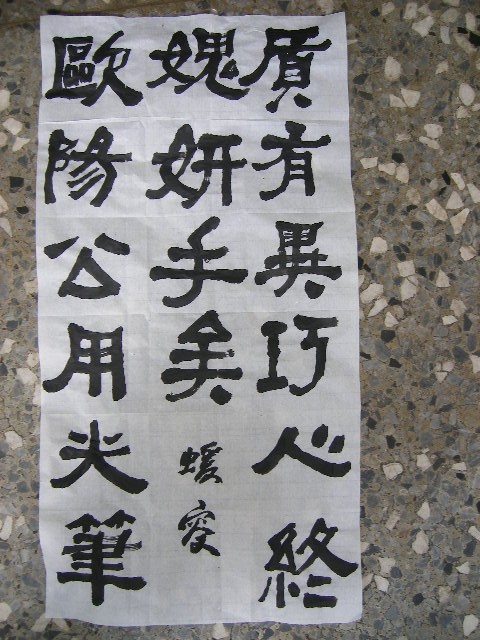 質有異巧心終
媿妍手美
蝯叟
歐陽公用尖筆